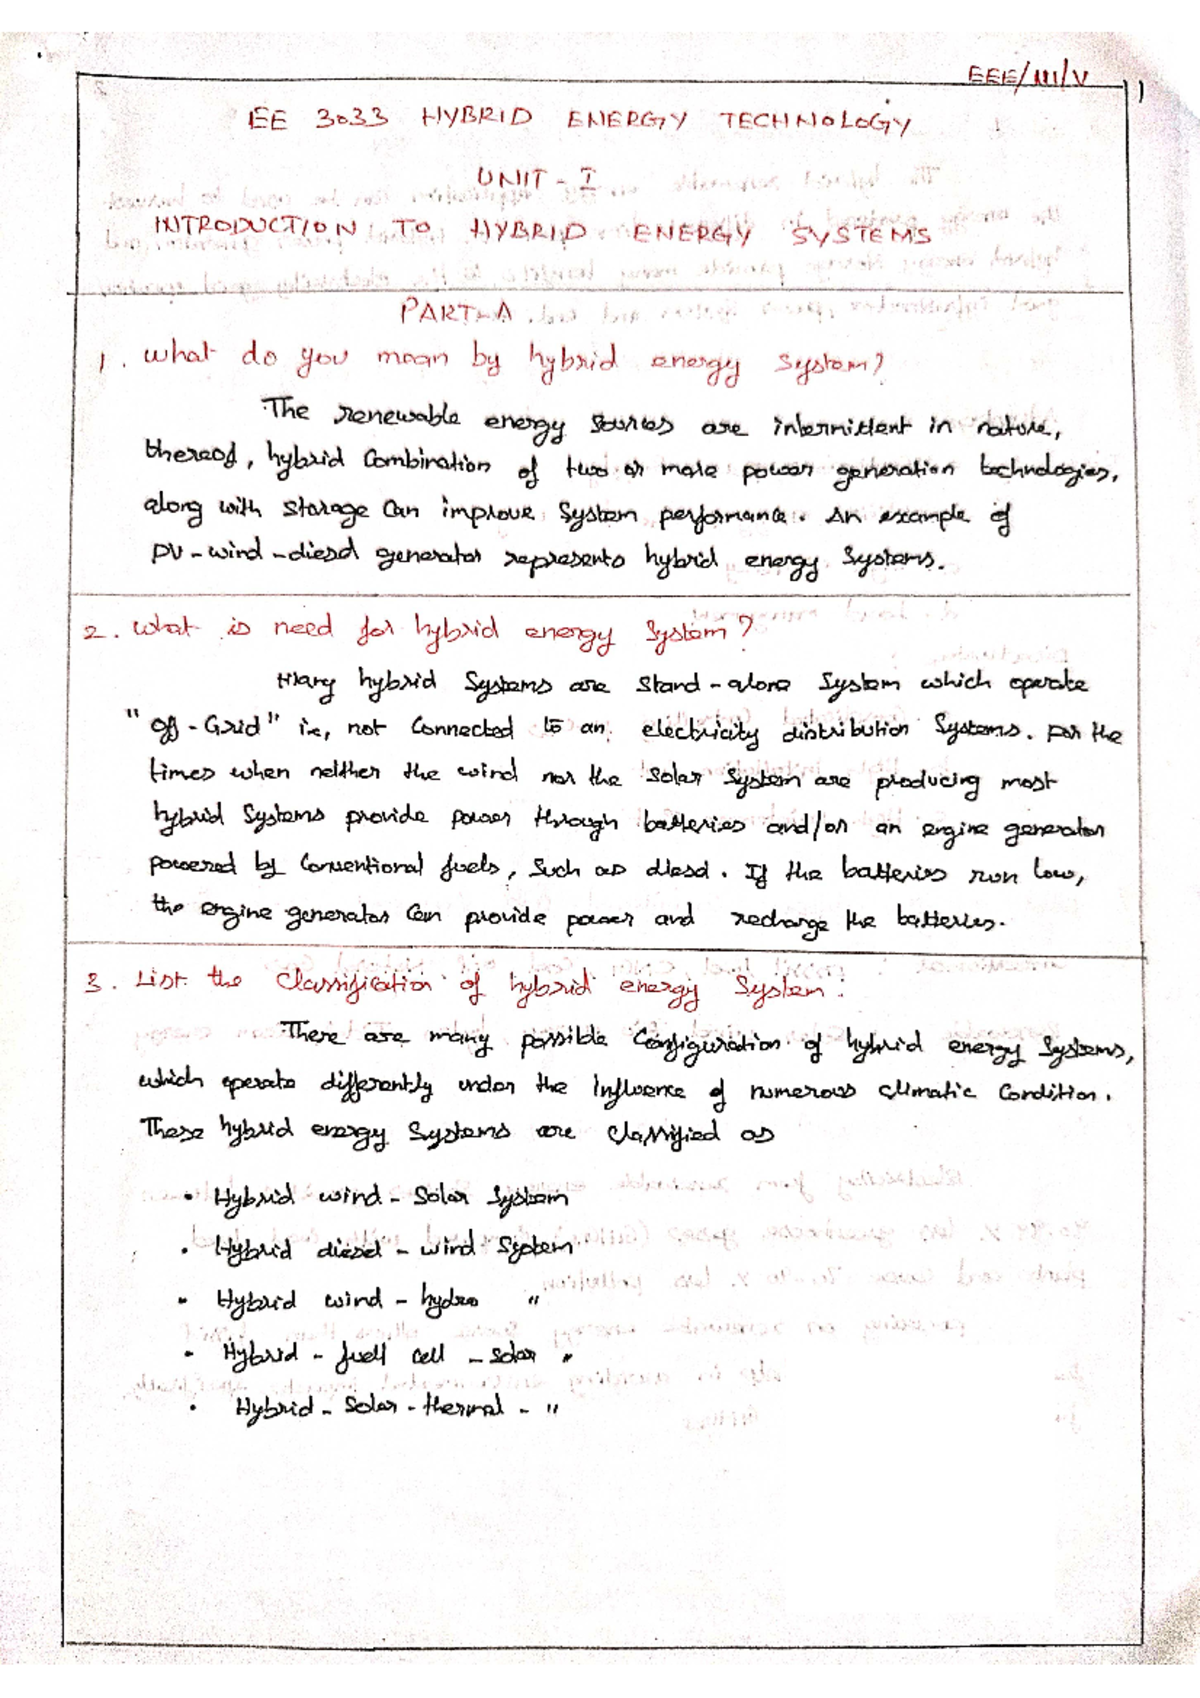 EEE/III/V
EE 3033 HYBRID ENERGY TECHNOLOGY
UNIT - I
INTRODUCTION TO HYBRID ENERGY SYSTEMS
PART-A
1. What do you mean by hybrid energy System?
The renewable energy Sources are intermittent in nature,
thereof, hybrid Combination of two or more power generation technologies,
along with Storage Can improve System performance. An example of
PV-wind-diesel generator represents hybrid energy Systems.
2. What is need for hybrid energy System?
Many hybrid Systems are Stand-alone System which operate
"off-Grid" ie, not Connected to an electricity distribution Systems. For the
times when neither the wind nor the Solar System are producing most
hybrid Systems provide power through batteries and/or an engine generator
powered by Conventional fuels, Such as diesel. If the batteries run low,
the engine generator Can provide power and recharge the batteries.
3. List the Classification of hybrid energy System.
There are many possible Configuration of hybrid energy Systems,
which operate differently under the influence of numerous climatic Condition.
These hybrid energy Systems are Classified as
• Hybrid wind - Solar System
• Hybrid diesel - wind System
• Hybrid wind - hydro "
• Hybrid - fuell cell - solar "
• Hybrid - Solar - thermal - "